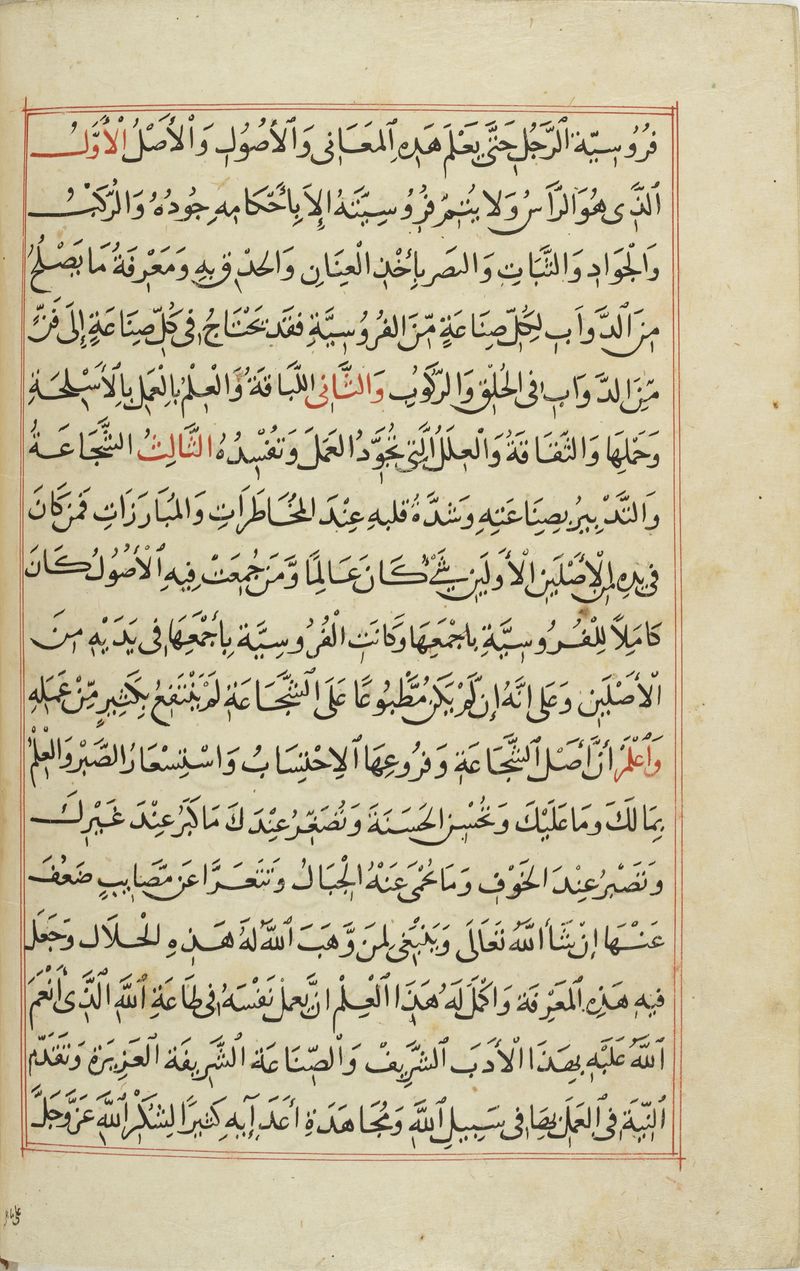 فُرُوسِيَّة الرَّجُلِ حَتَّى يَعْلَمَ هَذِهِ المَعَانِى وَالأُصُولِ وَالأَصْلُ الأَوَّلُ
الَّذِى هُوَ الرَّأسُ وَلا يُتِمُّ فُرُوسِيَّتَهُ إِلاَ بِأَحْكَامِهِ جُودُهُ وَالرُّكَبُ
وَالْجَوَادِ وَالثَّبَاتِ وَالبَصَر بِأَخْذِ الْعِنَانِ وَالحَذْقِ بِهِ وَمَعْرِفَةُ مَا يَصْلُحُ
مِنَ الدَّوَابِ لِكُلِّ صِنَاعَةٍ مِّنَ الفُرُوسِيَّةِ فقَد يَحْتَاجُ فِى كُلِّ صِنَاعَةٍ إِلَى فَنٍّ
مِّنَ الدَوَابِ فى الخُلْقِ وَالرُّكُوبِ وَالثَّانِى اللَّبَاقَةُ وَالْعِلْمُ بِالْعَمَلِ بِالأَسْلِحَةِ
وَحَمْلِهَا وَالثَقَافَةُ وَالْعِلَلُ الَّتِى تُجَوَّدُ العَمَلَ وَتُفْسِدُهُ الثَّالِثُ الشَّجَاعَةُ
وَالتَّدْبِيرُ بِصِنَاعَتِهِ وَشدَّةُ قلبهِ عِنْدَ المُخَاطَرَاتِ وَالمُبَارَزَاتِ فَمَن كَانَ
فِى يَدِهِ مِنَ الأَصْلَيْنِ الأَوَلَيْنِ شَىْءٌ كَانَ عَالِمًا وَّمَن جُمِعَتْ فِيهِ الأُصُولُ كَانَ
كَامِلاً لِلْفُرُوسِيَّةِ باجْمَعِهَا وَكَانَتِ الْفُرُوسِيَّة بِأَجْمَعِهَا فِى يَدَيْهِ مِنَ
الأَصْلَيْنِ وَعَلى انَّهُ إِن لَّمْ يَكُن مَّطْبُوعًا عَلَى الشَّجَاعَةِ لَمْ يَنْتَفِعْ بِكَثِيرٍ مِّنْ عَمَلِهِ
وَاعْلَمْ أَنَّ أَصْلَ الشَّجَاعَةِ وَفرُوعِهَا الاِحْتِسَابُ وَاسْتِسْعَارُ الصَّبْرِ وَالْعِلْمُ
بِمَا لَكَ وَمَا عَلَيْكَ وَتُحْسِنَ الحَسَنَةَ وَتُصَغِّرُ عِنْدَكَ مَا كَبَرُ عِنْدَ غَيْرِكَ
وَتَصْبِرُ عِنْدَ الخَوْفِ وَمَا تُحْمَى عَنْهُ الْجِبَالُ وَتَتَعَرَّا عَن مَّصَايِبٍ ضَعُفَ
عَنْهَا إِنْ شَاَ اللَّهُ تَعَالَى وَيَنْبَغِى لِمَن وَّهَبَ اللَّهُ لَهُ هَذِهِ الْخلَالَ وَجَعَلَ
فِيهِ هَذِهِ المَعْرِفَةَ وَاكْمَلَ لَهُ هَذَا الْعِلْمُ انَّ يعمل نَفْسَهُ فى طَاعَةِ اللَّهِ الَّذِى أَنْعَمَ
اللَّهُ عَلَيْهِ بِهَذَا الأَدَبَ الشَّرِيفْ وَالصِّنَاعَة الشَّرِيفَة العَزِيزَة وَتَقَدَّمَ
النِّيَّةَ فِى العَمَلَ بِهَا فِى سَبِيلِ اللَّهِ وَمُجَاهَدَةِ أَعْدَائِهِ كَثِيرًا لِشُكْرِ اللَّهِ عَزَّ وَجَلَّ